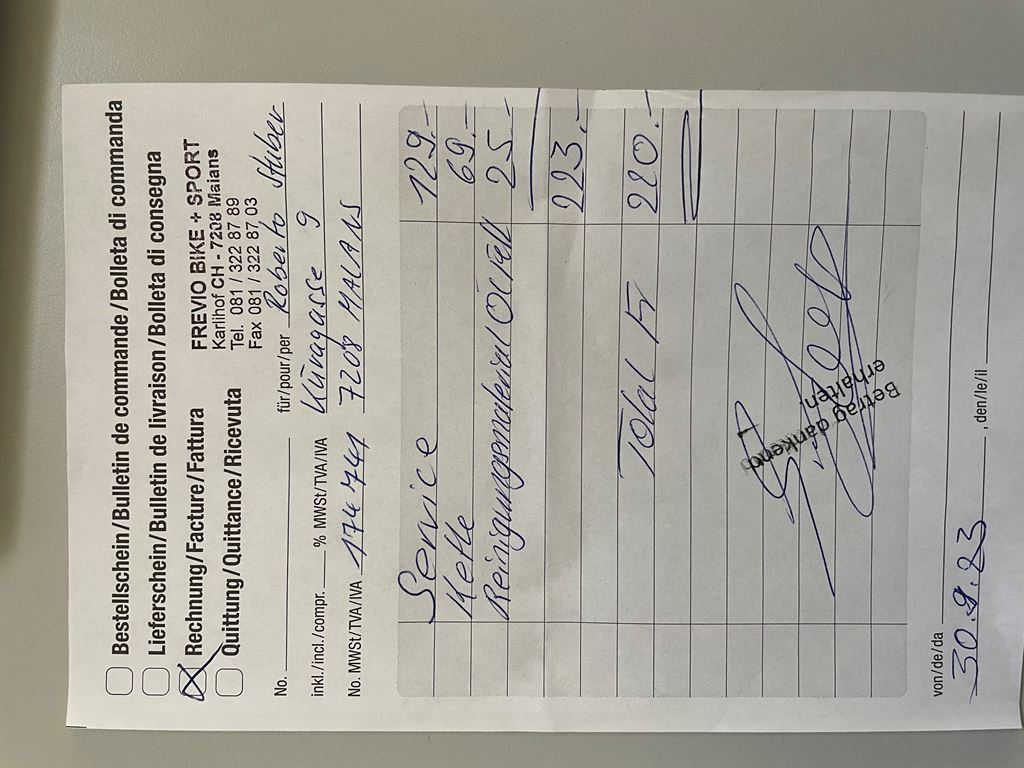 Bestellschein/Bulletin de commande/Bolleta di commanda
Lieferschein/Bulletin de livraison/Bolleta di consegna
Rechnung/Facture/Fattura
Quittung/Quittance/Ricevuta
FREVIO BIKE + SPORT
Karlihof CH - 7208 Maians
Tel. 081 / 322 87 89
Fax 081 / 322 87 03
No. für/pour/per Roberto Stuber
inkl./incl./compr. % MWSt/TVA/IVA Küragasse 9
No. MWSt/TVA/IVA 174 741 7208 MALANS
Service 129.-
Kette 69.-
Reinigungsmaterial 25.-
223.-
Total Fr 220.-
Betrag dankend
erhalten.
von/de/da , den/le/il
30.9.23